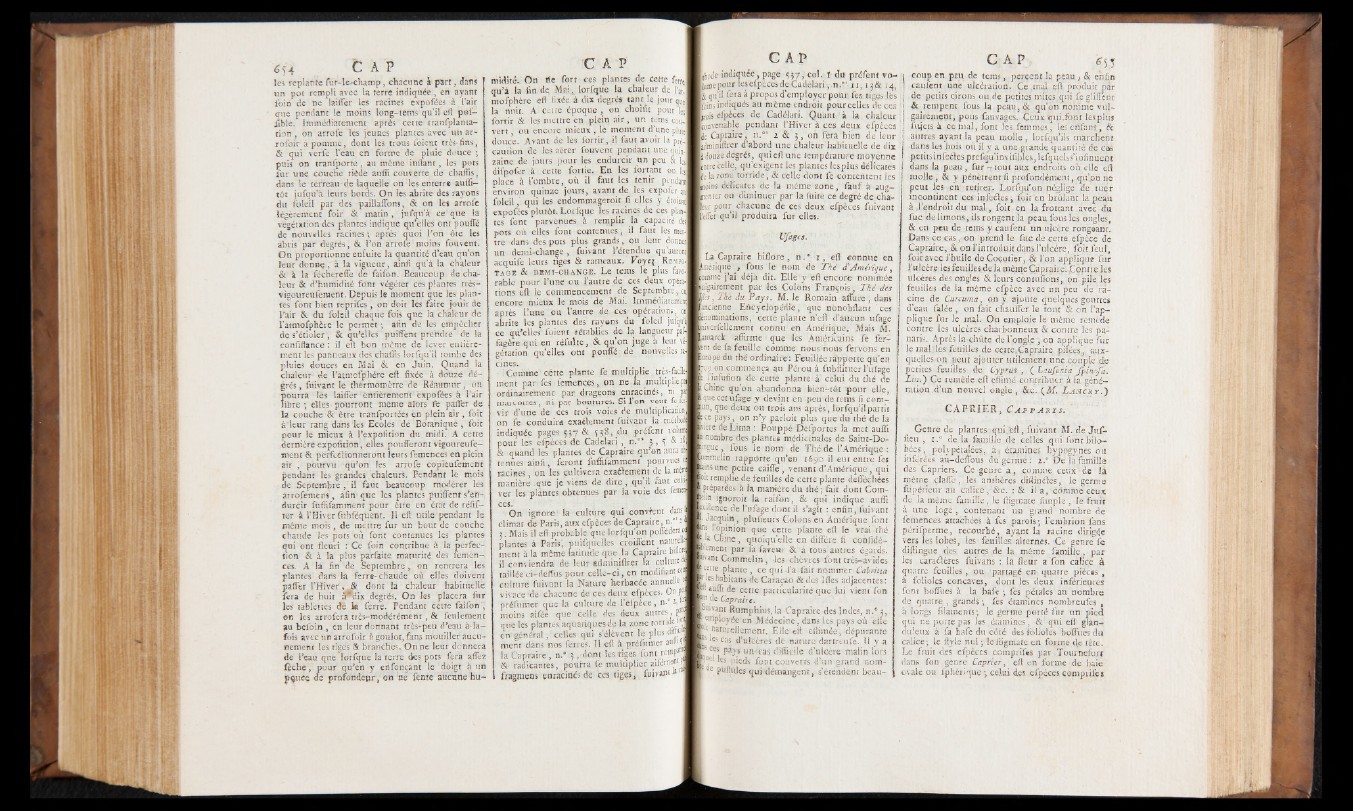 654 CAP CAP
les replante ſur-le-champ, chacune à part, dans
un pot rempli avec la terre indiquée, en ayant
ſoin de ne laiſſer les racines expoſées à l'air
que pendant le moins long-tems qu'il eſt poſ-
ſible. Immédiatement après cette tranſplanta-
tion, on arroſe les jeunes plantes avec un ar-
roſoir à pomme, dont les trous ſoient très-fins,
& qui verſe l'eau en forme de pluie douce;
puis on tranſporte, au même inſtant, les pots
ſur une couche tiède auſſi couverte de chaſſis,
dans le terreau de laquelle on les enterre auſſi-
tôt juſqu'à leurs bords. On les abrite des rayons
du ſoleil par des paillaſſons, & on les arroſe
légerement ſoir & matin, juſqu'à ce que la
végétation des plantes indique qu'elles ont pouſſé
de nouvelles racines; après quoi l'on ôte les
abris par degrés, & l'on arroſe moins ſouvent.
On proportionne enſuite la quantité d'eau qu'on
leur donne, à la vigueur, ainſi qu'à la chaleur
& à la ſéchereſſe de ſaiſon. Beaucoup de cha-
leur & d'humidité font végéter ces plantes très-
vigoureuſement. Depuis le moment que les plan-
tes ſont bien repriſes, on doit les faire jouir de
l'air & du ſoleil chaque fois que la chaleur de
l'atmoſphère le permet; afin de les empêcher
de s'étioler, & qu'elles puiſſent prendre de la
conſiſtance: il eſt bon même de lever entière-
ment les panneaux des chaſſis lorſqu'il tombe des
pluies douces en Mai & en Juin. Quand la
chaleur de l'atmoſphère eſt fixée à douze de-
grés, ſuivant le thermomètre de Réaumur, on
pourra les laiſſer entièrement expoſées à l'air
libre; elles pourront même alors ſe paſſer de
la couche & être tranſportées en plein air, ſoit
à leur rang dans les Ecoles de Botanique, ſoit
pour le mieux à l'expoſition du midi. A cette
dernière expoſition, elles pouſſeront vigoureuſe-
ment & perfectionneront leurs ſemences en plein
air, pourvu qu'on les arroſe copieuſement
pendant les grandes chaleurs. Pendant le mois
de Septembre, il faut beaucoup modérer les
arroſemens, afin que les plantes puiſſent s'en-
durcir ſuffiſamment pour être en état de réſiſ-
ter à l'Hiver ſubſéquent. Il eſt utile pendant le
même mois, de mettre ſur un bout de couche
chaude les pots où ſont contenues les plantes
qui ont fleuri: Ce ſoin contribue à la perfec-
tion & à la plus parfaite maturité des ſemen-
ces. A la fin de Septembre, on rentrera les
plantes dans la ſerre-chaude où elles doivent
paſſer l'Hiver, & dont la chaleur habituelle
ſera de huit à dix degrés. On les placera ſur
les tablettes de la ſerre. Pendant cette ſaiſon,
on les arroſera très-modérément, & ſeulement
au beſoin, en leur donnant très-peu d'eau à-la-
fois avec un arroſoir à goulot, ſans mouiller aucu-
nement les tiges & branches. On ne leur donnera
de l'eau que lorſque la terre des pots ſera aſſez
ſèche, pour qu'en y enfonçant le doigt à un
pouce de profondeur, on ne ſente aucune hu-
midité. On ne ſort ces plantes de cette ſerre,
qu'à la fin de Mai, lorſque la chaleur de
moſphère eſt fixée à dix degrés tant le jour que
la nuit. A cette époque, on choiſit pour les
ſortir & les mettre en plein air, un tems
vert, ou encore mieux, le moment d'une
douce. Avant de les ſortir, il faut avoir la
caution de les aërer ſouvent pendant une
zaine de jours pour les endurcir un peu &
diſpoſer à cette ſortie. En les ſortant on
place à l'ombre, où il faut les tenir pendant
environ quinze jours, avant de les expoſer au
ſoleil, qui les endommageroit ſi elles y étoient
expoſées plutôt. Lorſque les racines de ces plan-
tes ſont parvenues à remplir la capacité des
pots où elles ſont contenues, il faut les met-
tre dans des pots plus grands, ou leur donner
un demi-change, ſuivant l'étendue
acquiſe leurs tiges & rameaux. Voyez
TAGE & DEMI-CHANGE. Le tems le plus favo-
rable pour l'une ou l'autre de ces deux opéra-
tions eſt le commencement de Septembre,
encore mieux le mois de Mai. Immédiatement
après l'une ou l'autre de ces opérations, on
abrite les plantes des rayons du ſoleil juſqu'à
ce qu'elles ſoient rétablies de la langueur paſ-
ſagère qui en réſulte, & qu'on juge à leur vé-
gétation qu'elles ont pouſſé de nouvelles ra-
cines.
Comme cette plante ſe multiplie très-facile-
ment par ſes ſemences, on ne la multiplie pas
ordinairement par drageons enracinés, ni par
marcottes, ni par boutures. Si l'on veut ſe ſer-
vir d'une de ces trois voies de multiplication,
on ſe conduira exactement ſuivant la méthode
indiquée pages 537 & 538, du préſent volume
pour les eſpèces de Cadelari, n.os 3, 5 &
& quand les plantes de Capraire qu'on aura ob-
tenues ainſi, ſeront ſuffiſamment pourvues de
racines, on les cultivera exactement de la même
manière que je viens de dire, qu'il faut culti-
ver les plantes obtenues par la voie des ſemen-
ces.
On ignore la culture qui convient dans le
climat de Paris, aux eſpèces de Capraire, n.os 2 &
3. Mais il eſt probable que lorſqu'on poſſédera ces
plantes à Paris, puiſqu'elles croiſſent naturelle-
ment à la même latitude que la Capraire biflore,
il conviendra de leur adminiſtrer la culture dé-
taillée ci-deſſus pour celle-ci, en modifiant cette
culture ſuivant la Nature herbacée annuelle ou
vivace de chacune de ces deux eſpèces. On peut
préſumer que la culture de l'eſpèce, n.°
moins aiſée que celle des deux autres, parce
que les plantes aquatiques de la zone torride
en général, celles qui s'élèvent le plus difficile-
ment dans nos ſerres. Il eſt à préſumer auſſi que
la Capraire, n.° 3, dont les tiges ſont rampantes
& radicantes, pourra ſe multiplier aiſément par
fragmens enracinés de ces tiges, ſuivant la
CAP CAP 655
indiquée, page 537, col. 1 du préſent vo-
lume pour les eſpèces de Cadelari, n.os 11, 13 & 14,
& qu'il ſera à propos d'employer pour ſes tiges les
ſoins indiqués au même endroit pour celles de ces
trois eſpèces de Cadélari. Quant à la chaleur
convenable pendant l'Hiver à ces deux eſpèces
de Capraire, n.os 2 & 3, on ſera bien de leur
adminiſtrer d'abord une chaleur habituelle de dix
à douze degrés, qui eſt une température moyenne
entre celle, qu'exigent les plantes les plus délicates
de la zone torride, & celle dont ſe contentent les
moins délicates de la même zone, ſauf à aug-
menter ou diminuer par la ſuite ce degré de cha-
leur pour chacune de ces deux eſpèces ſuivant
l'effet qu'il produira ſur elles.
Uſages.
La Capraire biflore, n.° 1, eſt connue en
Amérique, ſous le nom de Thé d'Amérique,
comme j'ai déjà dit. Elle y eſt encore nommée
vulgairement par les Colons François, Thé des
Iſles, Thé du Pays. M. le Romain aſſure, dans
l'ancienne Encyclopédie, que nonobſtant ces
dénominations, cette plante n'eſt d'aucun uſage
univerſellement connu en Amérique. Mais M.
Lamarck affirme que les Américains ſe ſer-
vent de ſa feuille comme nous nous ſervons en
Europe du thé ordinaire: Feuillée rapporte qu'en
on commença au Pérou à ſubſtituer l'uſage
infuſion de cette plante à celui du thé de
la Chine qu'on abandonna bien-tôt pour elle,
& que cet uſage y devint en peu de tems ſi com-
mun, que deux ou trois ans après, lorſqu'il partit
de ce pays, on n'y parloit plus que du thé de la
rivière de Lima: Pouppé Deſportes la met auſſi
au nombre des plantes médicinales de Saint-Do-
mingue, ſous le nom de Thé de l'Amérique:
Commelin rapporte qu'en 1690 il eut entre ſes
mains une petite caiſſe, venant d'Amérique, qui
étoit remplie de feuilles de cette plante deſſéchées
& préparées à la manière du thé; fait dont Com-
melin ignoroit la raiſon, & qui indique auſſi
l'exiſtence de l'uſage dont il s'agit: enfin, ſuivant
M. Jacquin, pluſieurs Colons en Amérique ſont
dans l'opinion que cette plante eſt le vrai thé
de la Chine, quoiqu'elle en diffère ſi conſidé-
rablement par ſa ſaveur & à tous autres égards.
Suivant Commelin, les chèvres ſont très-avides
de cette plante, ce qui l'a fait nommer Cabritta
par les habitans de Curaçao & des iſles adjacentes:
C'eſt auſſi de cette particularité que lui vient ſon
nom de Capraire.
Suivant Rumphius, la Capraire des Indes, n.° 3,
eſt employée en Médecine, dans les pays où elle
croît naturellement. Elle eſt eſtimée, dépurante
dans les cas d'ulcères de nature dartreuſe. Il y a
dans ces pays un cas difficile d'ulcère malin lorſ-
que les pieds ſont couverts d'un grand nom-
bre de puſtules qui démangent, s'étendent beau-
coup en peu de tems, percent la peau, & enfin
cauſent une ulcération. Ce mal eſt produit par
de petits cirons ou de petites mites qui ſe gliſſent
& rempent ſous la peau, & qu'on nomme vul-
gairement, pous ſauvages. Ceux qui ſont les plus
ſujets à ce mal, ſont les femmes, les enfans, &
autres ayant la peau molle, lorſqu'ils marchent
dans les bois où il y a une grande quantité de ces
petits inſectes preſqu'inviſibles, leſquels s'inſinuent
dans la peau, ſur-tout aux endroits où elle eſt
molle, & y pénètrent ſi profondément, qu'on ne
peut les en retirer. Lorſqu'on néglige de tuer
incontinent ces inſectes, ſoit en brûlant la peau
à l'endroit du mal, ſoit en la frottant avec du
ſuc de limons, ils rongent la peau ſous les ongles,
& en peu de tems y cauſent un ulcère rongeant.
Dans ce cas, on prend le ſuc de cette eſpèce de
Capraire, & on l'introduit dans l'ulcère, ſoit ſeul,
ſoit avec l'huile de Cocotier, & l'on applique ſur
l'ulcère les feuilles de la même Capraire. Contre les
ulcères des ongles & leurs contuſions, on pile les
feuilles de la même eſpèce avec un peu de ra-
cine de Curcuma, on y ajoute quelques gouttes
d'eau ſalée, on fait chauffer le tout & on l'ap-
plique ſur le mal. On emploie le même remède
contre les ulcères charbonneux & contre les pa-
naris. Après la chûte de l'ongle, on applique ſur
le mal les feuilles de cette Capraire pilées, aux-
quelles on peut ajouter utilement une couple de
petites feuilles de Cyprus, (Lauſonia ſpinoſa.
Lin.) Ce remède eſt eſtimé contribuer à la géné-
ration d'un nouvel ongle, &c. (M. LANCRY.)
CAPRIER, CAPPARIS.
Genre de plantes qui eſt, ſuivant M. de Juſ-
ſieu, 1.° de la famille de celles qui ſont bilo-
bées, polypétalées, à étamines hypogynes ou
inſérées au-deſſous du germe: 2.° De la famille
des Capriers. Ce genre a, comme ceux de la
même claſſe, les anthères diſtinctes, le germe
ſupérieur au calice, &c.: & il a, comme ceux
de la même famille, le ſtigmate ſimple, le fruit
à une loge, contenant un grand nombre de
ſemences attachées à ſes parois; l'embrion ſans
périſperme, recourbé, ayant la racine dirigée
vers les lobes, les feuilles alternes. Ce genre ſe
diſtingue des autres de la même famille, par
les caractères ſuivans: la fleur a ſon calice à
quatre feuilles, ou partagé en quatre pièces,
à folioles concaves, dont les deux inférieures
ſont boſſues à la baſe; ſes pétales au nombre
de quatre, grands; ſes étamines nombreuſes,
à longs filaments; le germe porté ſur un pied
qui ne porte pas les étamines, & qui eſt glan-
duleux à ſa baſe du côté des folioles boſſues du
calice; le ſtyle nul; le ſtigmate en forme de tête.
Le fruit des eſpèces compriſes par Tournefort
dans ſon genre Caprier, eſt en forme de baie
ovale ou ſphérique; celui des eſpèces compriſes